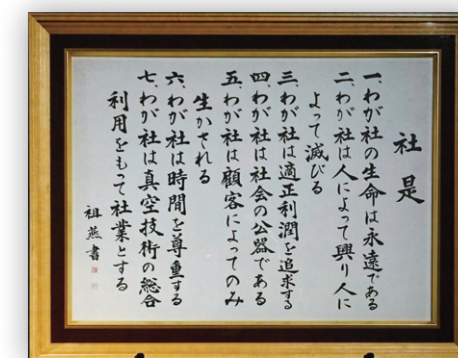 社是
一、わが社の生命は永遠である
二、わが社は人によって興り人に
よって滅びる
三、わが社は適正利潤を追求する
四、わが社は社会の公器である
五、わが社は顧客によってのみ
生かされる
六、わが社は時間を尊重する
七、わが社は真空技術の総合
利用をもって社業とする
祖燕書